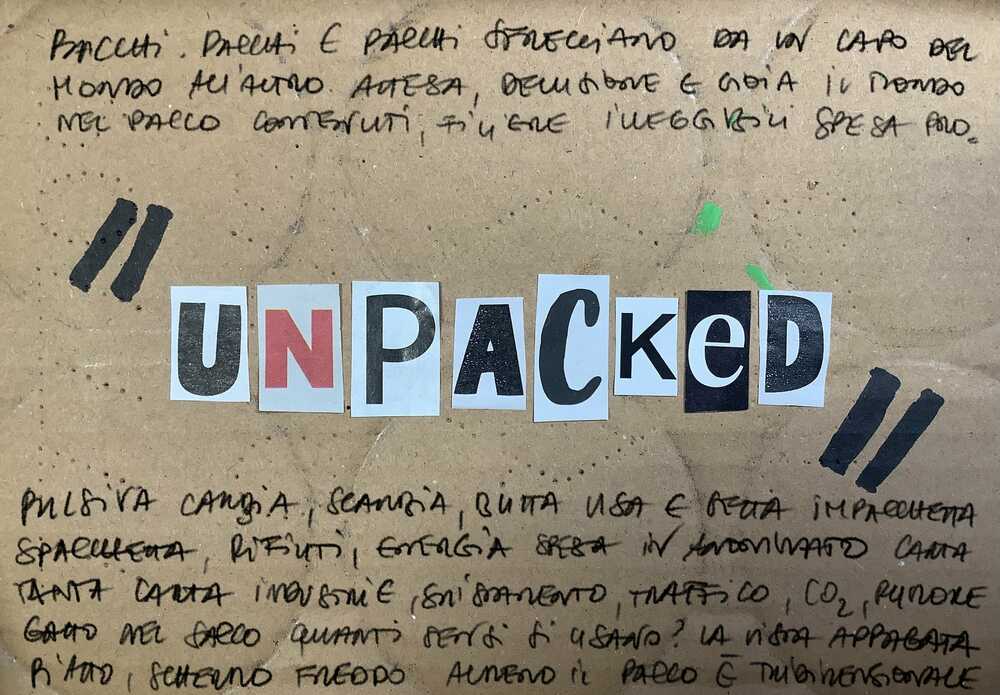 PACCHI. PACCHI E PACCHI SFRECCIANO DA UN CAPO DEL
MONDO ALL'ALTRO ATTESA, DELUSIONE E GIOIA IL MONDO
NEL PACCO CONTENUTI, FILIERE ILLEGGIBILI SPESA
"UNPACKED"
PULSIVA CAMBIA, SCAMBIA, BUTTA USA E GETTA IMPACCHETTA
SPACCHETTA, RIFIUTI, ENERGIA SPESA IN CARTA
TANTA CARTA INDUSTRIE, TRAFFICO, CO2, RUMORE
GATTO NEL SACCO QUANTI SENSI SI USANO? LA VISTA APPAGATA
PIATTO, SCHERMO FREDDO ALMENO IL PACCO È TRIDIMENSIONALE